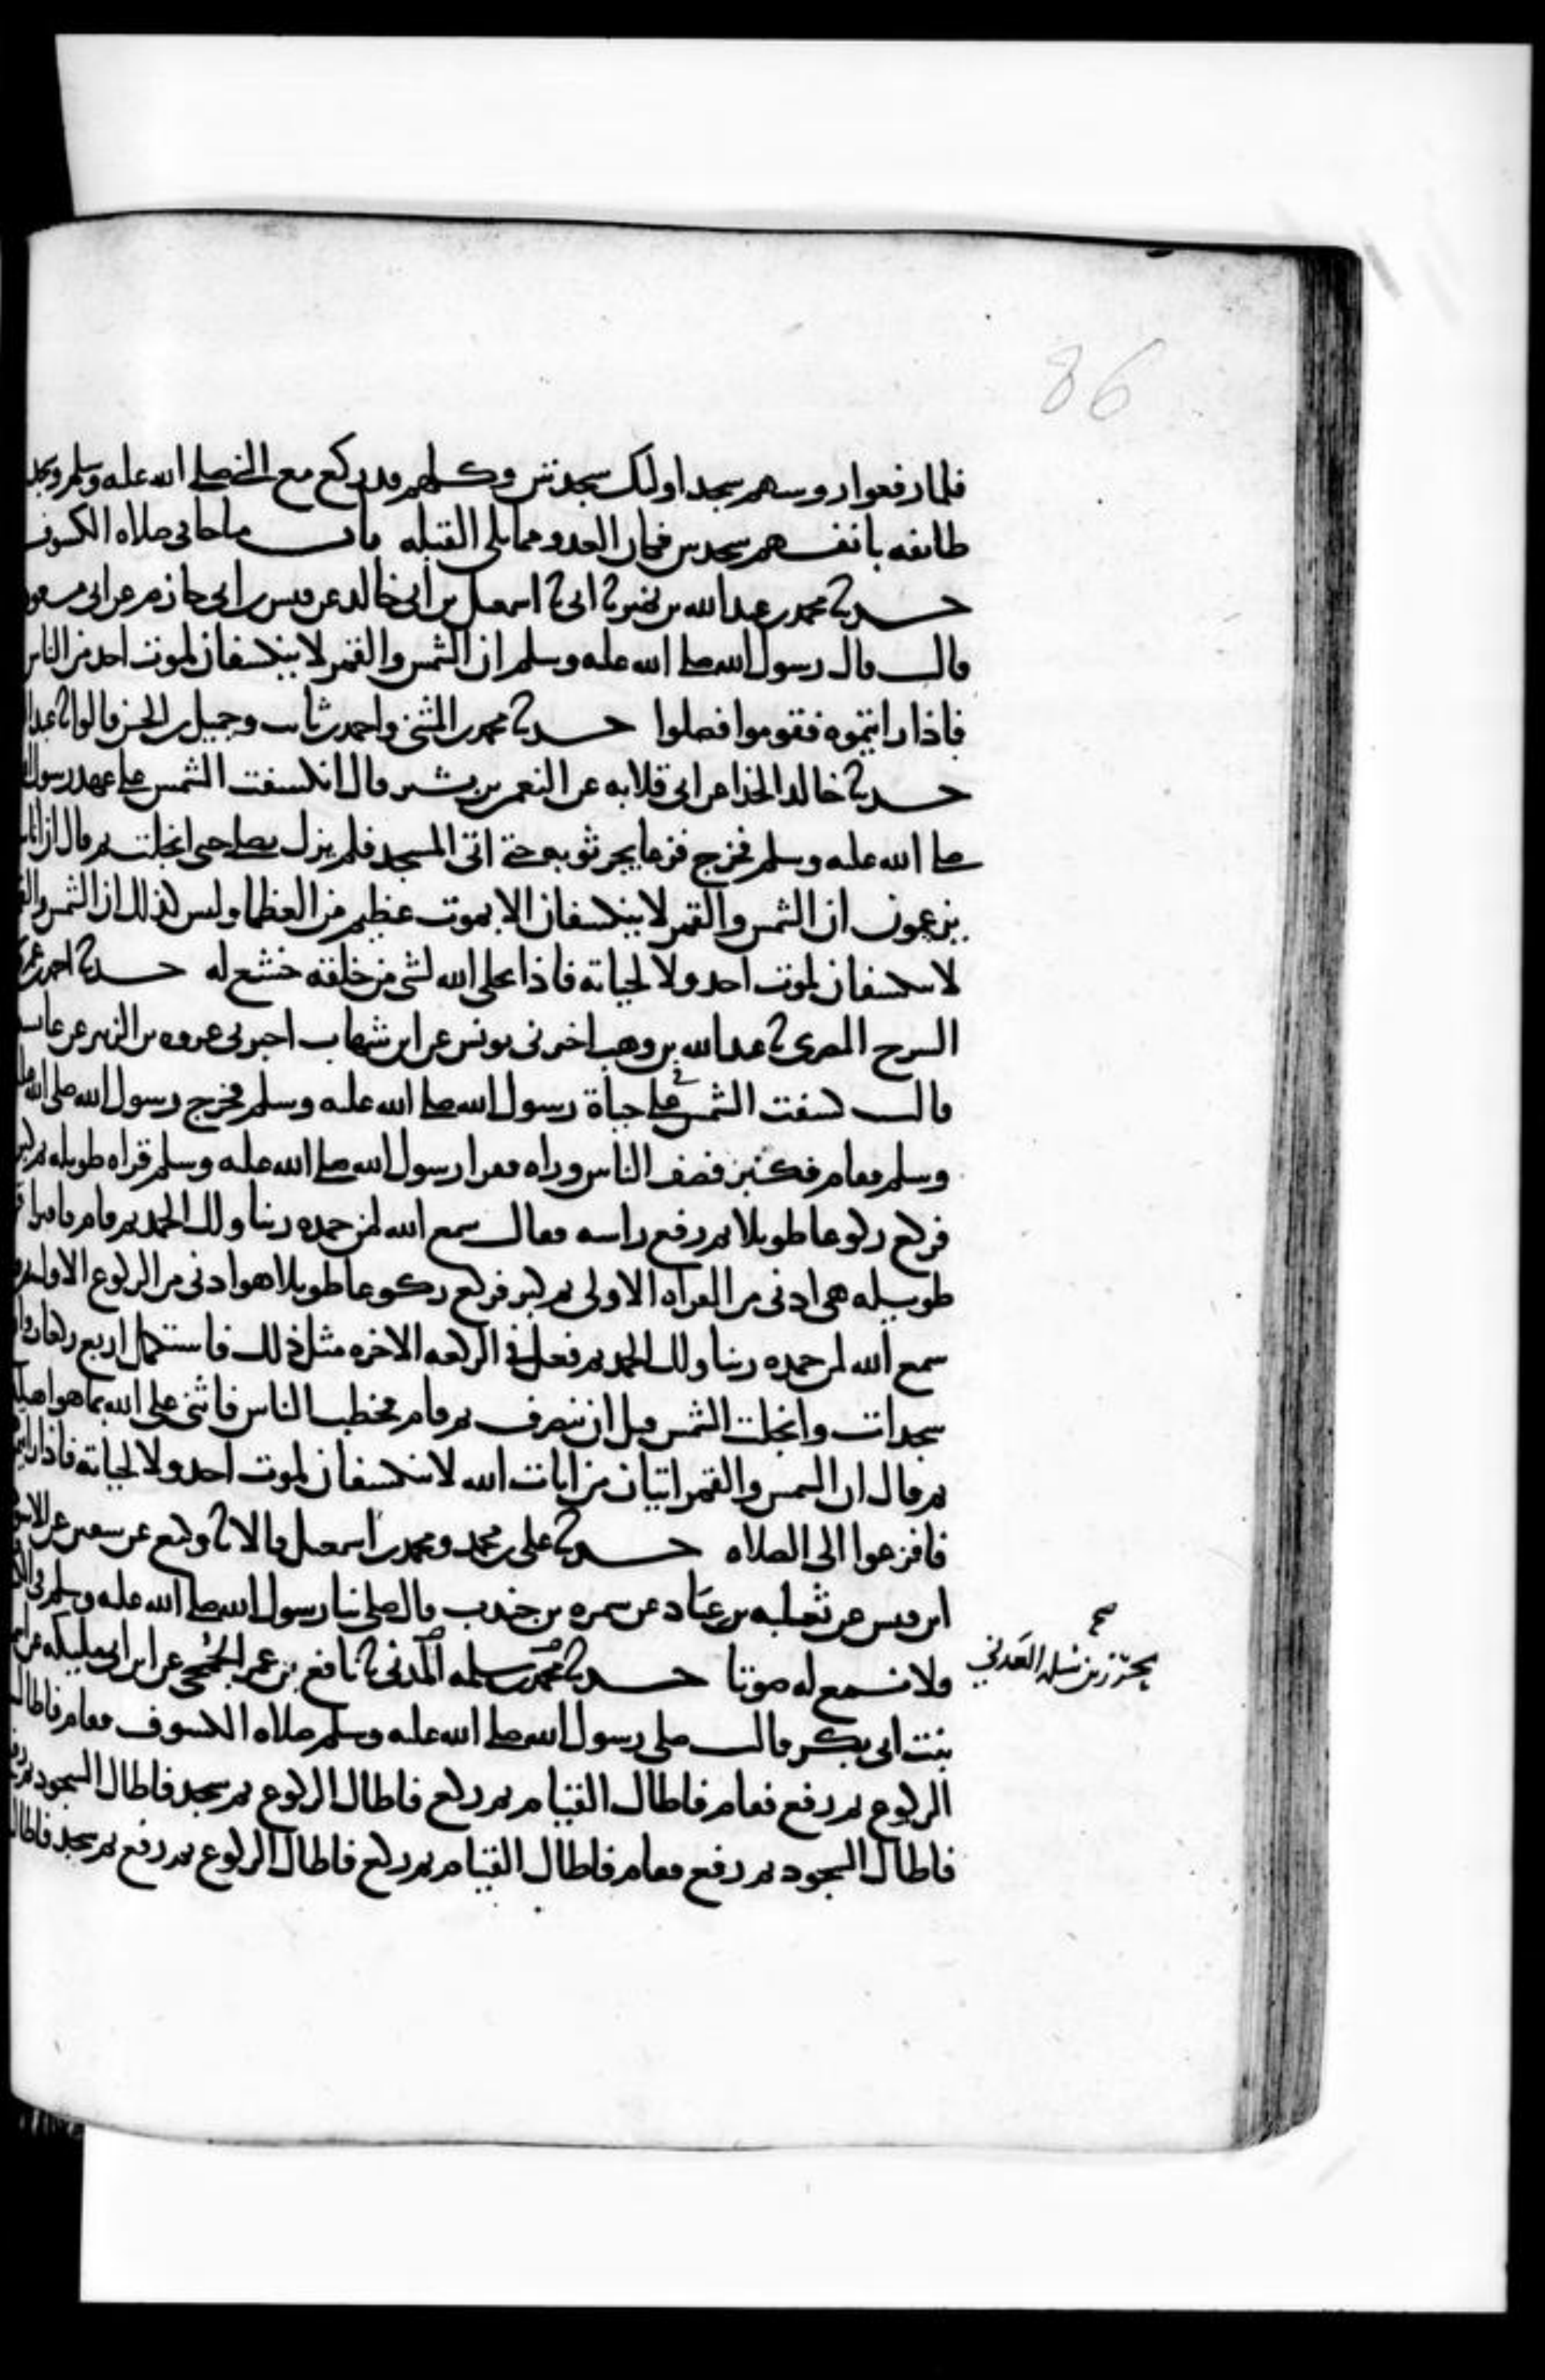 86
فلما رفعوا روسهم سجد اولىك سجدتين وكلهم قد ركع مع النبي صلى الله عليه وسلم وسجد
طائفه بانفسهم سجدتين فكان العدو مما يلي القبله باب ما جا في صلاه الكسوف
حدثنا محمد بن عبد الله بن نمير ثنا ابي ثنا اسمعيل بن ابي خالد عن قيس بن ابي حازم عن ابي مسعود
قال قال رسول الله صلى الله عليه وسلم ان الشمس والقمر لا ينكسفان لموت احد من الناس
فاذا رايتموه فقوموا فصلوا حدثنا محمد بن المثنى واحمد بن ثابت وجميل بن الحسن قالوا ثنا عبد
حدثنا خالد الحذا عن ابي قلابه عن النعمن بن بشير قال انكسفت الشمس على عهد رسول
صلى الله عليه وسلم فخرج فزعا يجر ثوبه حتى اتى المسجد فلم يزل يصلي حتى انجلت ثم قال ان اناسا
يزعمون ان الشمس والقمر لا ينكسفان الا بموت عظيم من العظما وليس كذلك ان الشمس والقمر
لا ينكسفان لموت احد ولا لحياته فاذا تجلى الله لشي من خلقه خشع له حدثنا احمد بن عمرو
السرح المصري ثنا عبد الله بن وهب اخبرني يونس عن ابن شهاب اخبرني عروه بن الزبير عن عائشه
قالت كسفت الشمس على حياة رسول الله صلى الله عليه وسلم فخرج رسول الله صلى الله عليه
وسلم فقام فكبر فصف الناس وراه فقرا رسول الله صلى الله عليه وسلم قراه طويله ثم كبر
فركع ركوعا طويلا ثم رفع راسه فقال سمع الله لمن حمده ربنا ولك الحمد ثم قام فقرا
طويله هي ادنى من القراه الاولى ثم كبر فركع ركوعا طويلا هو ادنى من الركوع الاول
سمع الله لمن حمده ربنا ولك الحمد ثم فعل في الركعه الاخره مثل ذلك فاستكمل اربع ركعات
سجدات وانجلت الشمس قبل ان ينصرف ثم قام فخطب الناس فاثنى على الله بما هو اهله
ثم قال ان الشمس والقمر ايتان من ايات الله لا ينكسفان لموت احد ولا لحياته فاذا رايتم
فافزعوا الى الصلاه حدثنا علي بن محمد ومحمد بن اسمعيل قالا ثنا وكيع عن سفين عن الاسود
ابن قيس عن ثعلبه بن عباد عن سمره بن جندب قال صلى بنا رسول الله صلى الله عليه وسلم في
ولا نسمع له صوتا حدثنا محمد بن سلمه المدني ثنا نافع بن عمر الجمحي عن ابن ابي مليكه عن
صح
محرز بن سلمه العدني
بنت ابي بكر قالت صلى رسول الله صلى الله عليه وسلم صلاه الكسوف فقام فاطال
الركوع ثم رفع فقام فاطال القيام ثم ركع فاطال الركوع ثم سجد فاطال السجود ثم رفع
فاطال السجود ثم رفع فقام فاطال القيام ثم ركع فاطال الركوع ثم رفع ثم سجد فاطال